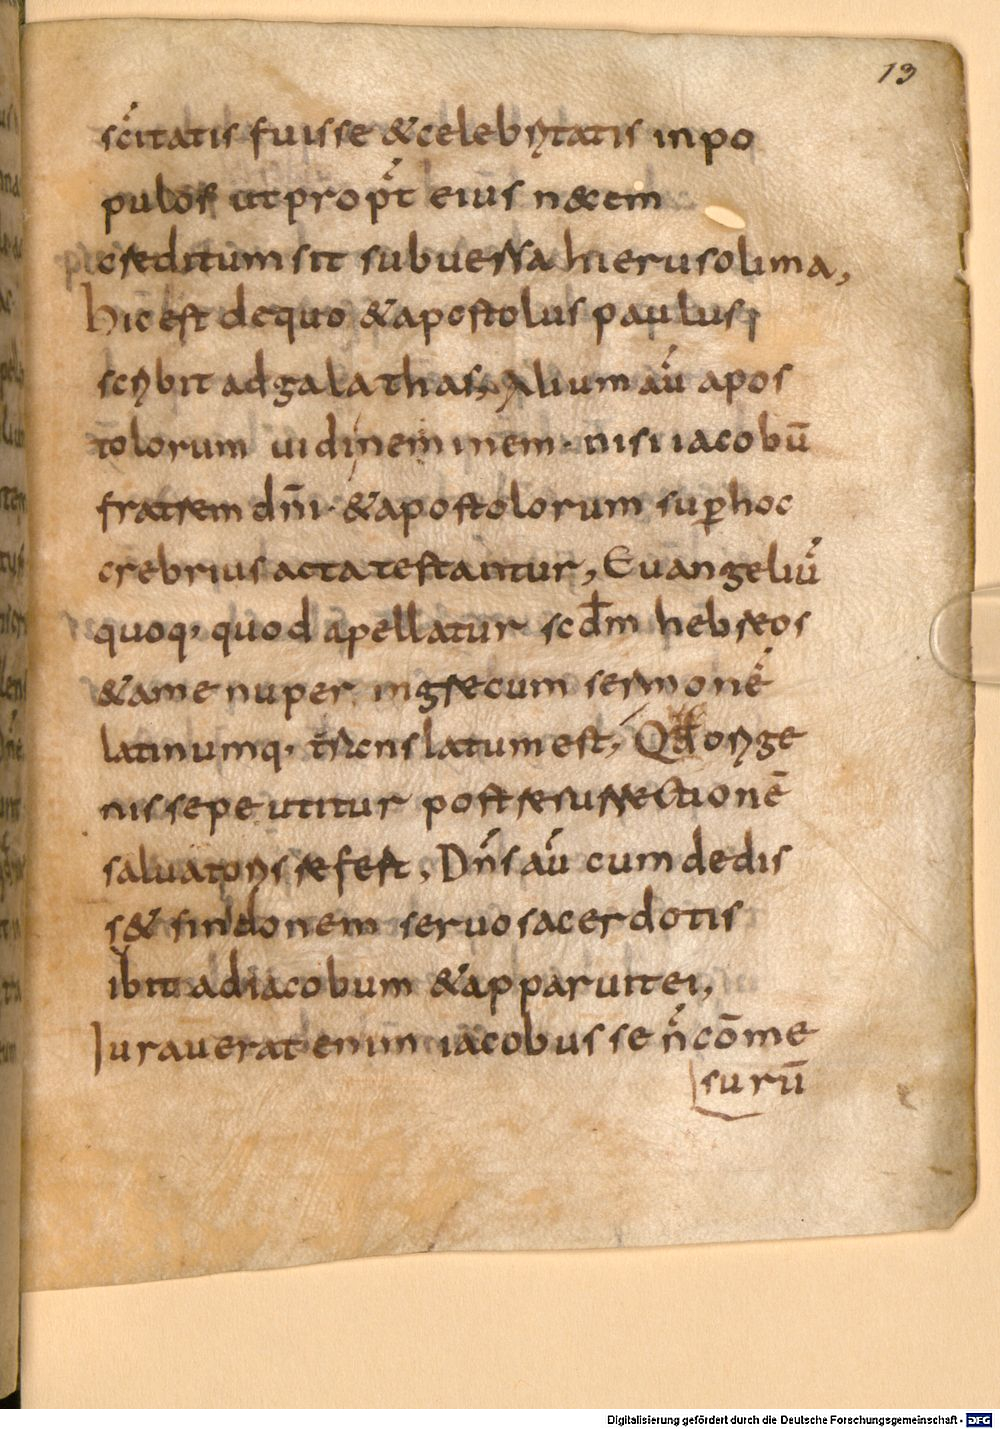 13
sc̄itatis fuisse &celebritatis inpo
pulos utprop̄t eius n&cem
creditum sit subuersa hierusolima,
hic est dequo &apostolus paulus
scribit adgalathas, Alium aū apos
tolorum uidi neminem · nisi iacobū
fratrem dn̄i · &apostolorum suꝑhoc
crebrius acta testantur, Euangeliū
quoq· quod apellatur scd̄m hebreos
&ame nuper ingrecum sermonē
latinumq· translatum est, Qđ orige
nis sepe utitur post resurrectionē
saluatoris refert, Dn̄s aū cum dedis
s& sindonem seruo sacerdotis
ibit adiacobum &apparuit ei,
Iurauerat enim iacobus se n̄ cōme
surū
Digitalisierung gefördert durch die Deutsche Forschungsgemeinschaft - DFG